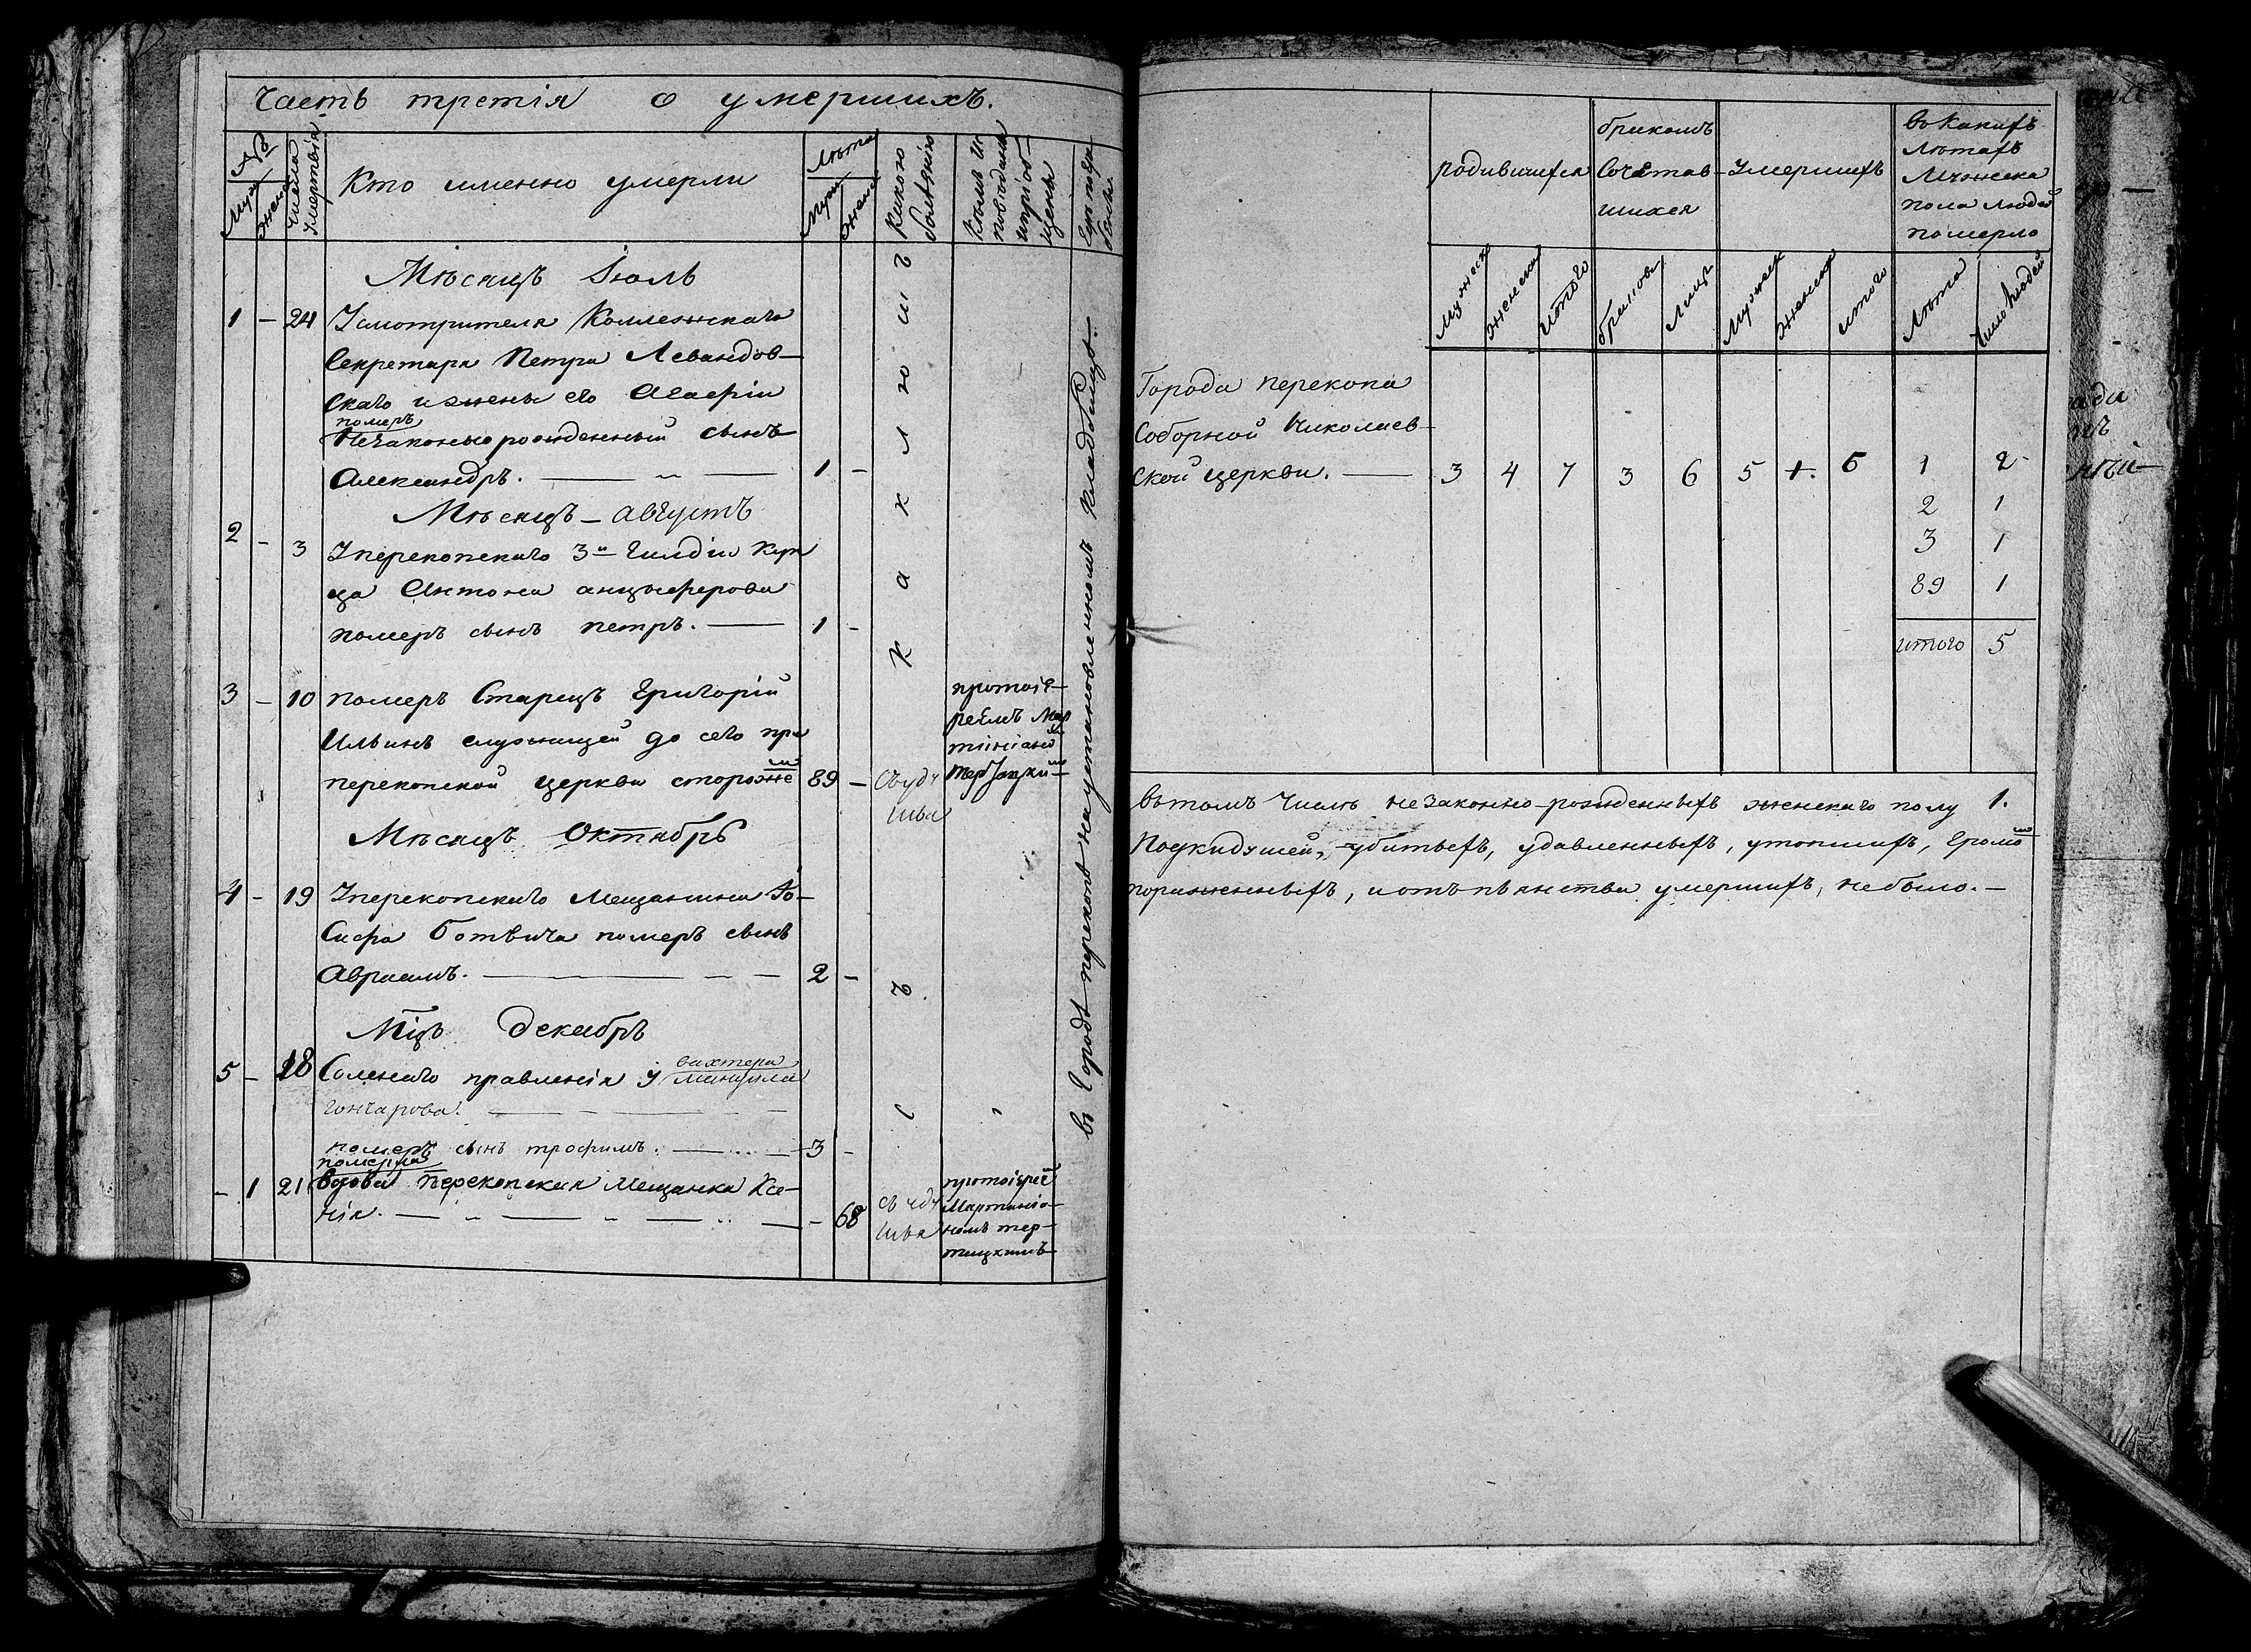 Часть третія о умершихъ.
№
Муж
Женс
Числа
Умертвія
Кто именно умерли
Лѣта
Муж
Женс
Какою
болѣзнію
Кѣмъ и
повѣданы
и пріоб-
щены
Мѣсяцъ Іюль
1 — 24 Усмотрителя Коллежскаго
Секретара Петра Левандов-
скаго и жены его Агафіи
померъ
Незаконнорожденный сынъ
Александръ. — 1 -
Мѣсецъ — августъ
2 - 3 Уперекопскаго 3й Гилдіи Куп
ца Антона анцыферова
померъ сынъ петръ. — 1 -
3 - 10 померъ Старецъ Григорій
Ильинъ служищей до сего при
перекопской церкви стороже 89 -
протоіе-
реемъ Мар
тиніаном
Мѣсяцъ Октябрь
4 - 19 Уперекопскаго Мещанина Іо-
сифа Ботвича померъ сынъ
Авраамъ. — 2 -
Мцъ декабръ
5 - 18 Соленаго правленія У вахтера
гончарова. —
померъ сынъ трофимъ. — 3 -
померла
- 1 21 Вдова Перекопская Мещанка Ксе-
нія. — - 68
протоіерей
Мартиніа-
номъ тер-
лицкимъ
въ Городѣ перекопѣ на установленномъ кладбищѣ.
родившихся
бракомъ
Сочетав-
шихся
Умершихъ
вокакихъ
Лѣтахъ
Мужеска
пола людей
померло
Мужеск
Женски
Итого
браковъ
Лицъ
Мужеск
Женск
итого
Лѣта
Число Людей
Города перекопа
Соборной Николаев-
ской церкви. — 3 4 7 3 6 5 1. 6 1 2
2 1
3 1
89 1
итого 5
Вътомъ Числѣ незаконно-рожденныхъ женскаго полу 1.
Подкидышей, убитыхъ, удавленныхъ, утопшихъ, Громом
пораженныхъ, и отъ пьянства умершихъ, небыло. —